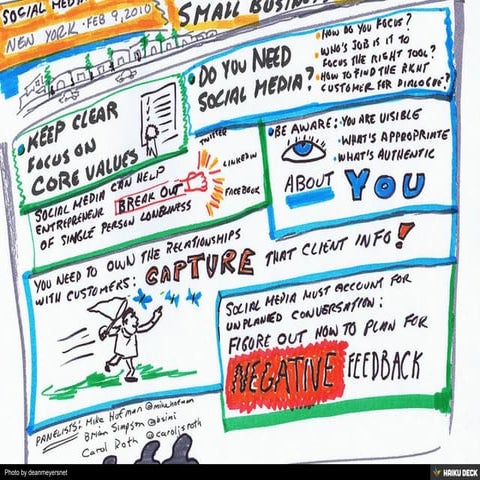 SOCIAL MEDIA
SMALL BUSIN
NEW YORK · FEB 9, 2010
DO YOU NEED
SOCIAL MEDIA?
HOW DO YOU FOCUS?
WHO'S JOB IS IT TO
FOCUS THE RIGHT TOOL?
HOW TO FIND THE RIGHT
CUSTOMER FOR DIALOGUE?
KEEP CLEAR
FOCUS ON
CORE VALUES
BE AWARE: YOU ARE VISIBLE
WHAT'S APPROPRIATE
WHAT'S AUTHENTIC
ABOUT YOU
SOCIAL MEDIA CAN HELP
ENTREPRENEUR BREAK OUT
OF SINGLE PERSON LONELINESS
TWITTER
LINKEDIN
FACEBOOK
YOU NEED TO OWN THE RELATIONSHIPS
WITH CUSTOMERS: CAPTURE THAT CLIENT INFO!
SOCIAL MEDIA MUST ACCOUNT FOR
UNPLANNED CONVERSATION:
FIGURE OUT HOW TO PLAN FOR
NEGATIVE FEEDBACK
PANELISTS: Mike Hofman @mikehofman
Brian Simpson @bsimi
Carol Roth @caroljsroth
Photo by deanmeyersnet
HAIKU DECK